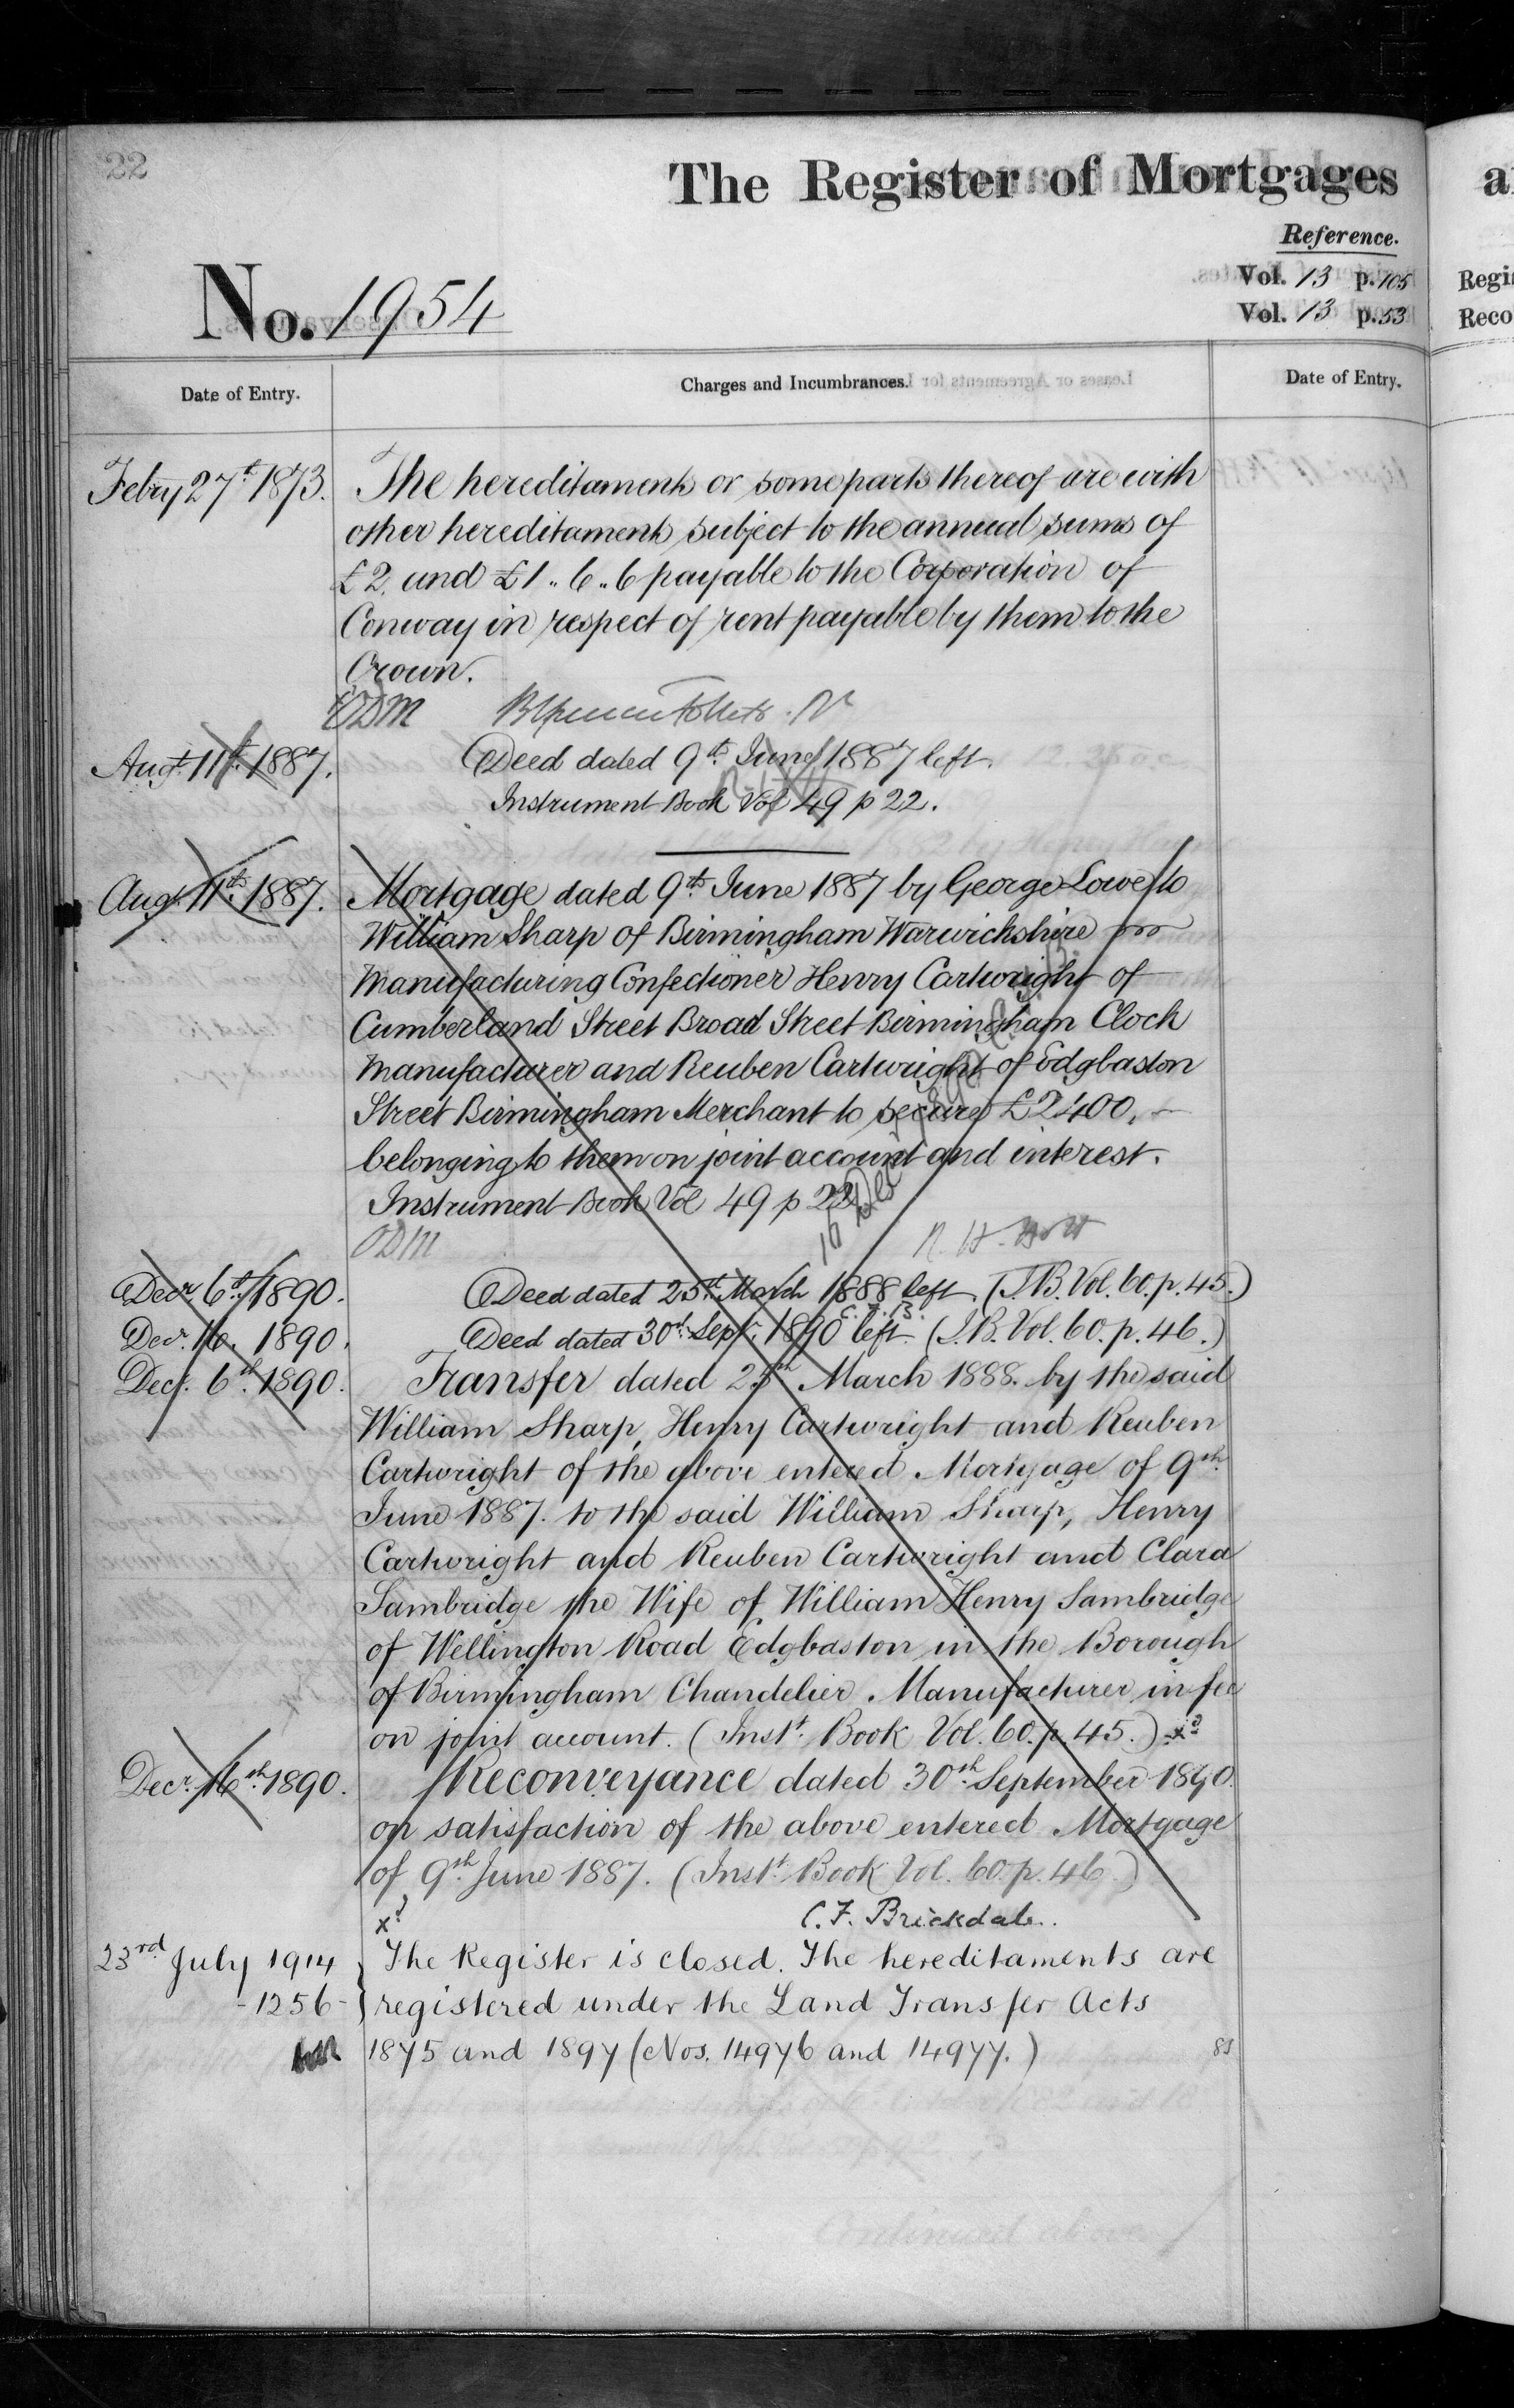 22
The Register of Mortgages
Reference.
Vol. 13 p. 105
Vol. 13 p. 53
No. 1954
Date of Entry.
Charges and Incumbrances.
Date of Entry.
Febry 27th 1873.
The hereditaments or some parts thereof are with
other hereditaments subject to the annual sums of
£2. and £1..6..6 payable to the Corporation of
Conway in respect of rent payable by them to the
Crown.
ODM
Augt. 11th. 1887.
Deed dated 9th June 1887 left.
Instrument Book Vol 49 p 22.
Augt. 11th. 1887.
Mortgage dated 9th June 1887 by George Lowe to
William Sharp of Birmingham Warwickshire
Manufacturing Confectioner Henry Cartwright of
Cumberland Street Broad Street Birmingham Clock
Manufacturer and Reuben Cartwright of Edgbaston
Street Birmingham Merchant to secure £2400,
belonging to them on joint account and interest.
Instrument Book Vol 49 p 22
ODM
R. H. Holt
Decr. 6th. 1890.
Deed dated 25th. March 1888 left. (I.B. Vol. 60. p. 45.)
Decr. 16. 1890.
Deed dated 30th. Sept. 1890 left (I.B. Vol. 60. p. 46.)
Decr. 6th. 1890.
Transfer dated 25th March 1888. by the said
William Sharp, Henry Cartwright and Reuben
Cartwright of the above entered Mortgage of 9th
June 1887. to the said William Sharp, Henry
Cartwright and Reuben Cartwright and Clara
Sambridge the Wife of William Henry Sambridge
of Wellington Road Edgbaston in the Borough
of Birmingham Chandelier Manufacturer in fee
on joint account. (Instt. Book Vol. 60. p. 45.) xd
Decr. 16th. 1890.
Reconveyance dated 30th. September 1890.
on satisfaction of the above entered Mortgage
of 9th June 1887. (Instt. Book Vol. 60. p. 46.)
xd
C. F. Brickdale.
23rd July 1914
The Register is closed. The hereditaments are
-1256-
registered under the Land Transfer Acts
1875 and 1897 (Nos. 14976 and 14977.)
a
Regis
Reco